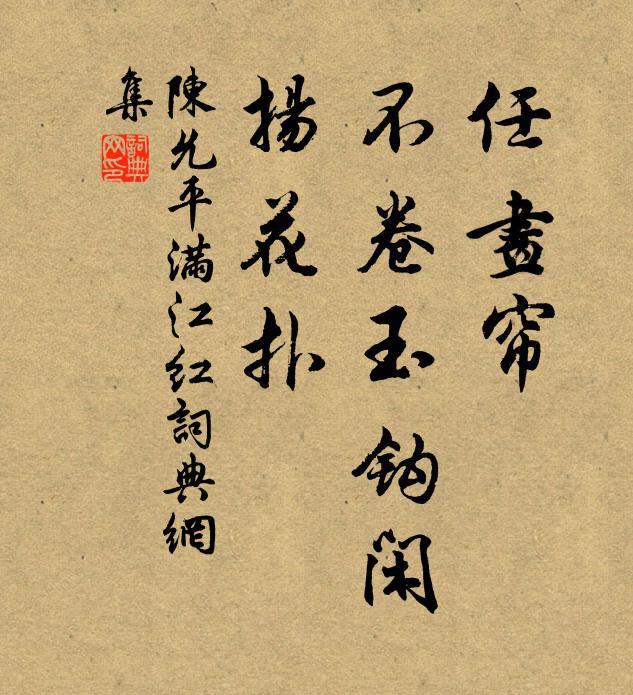 任畫帘
不卷玉鈎閑
揚花扑
陳允平滿江紅詞典網
集
詞典網印